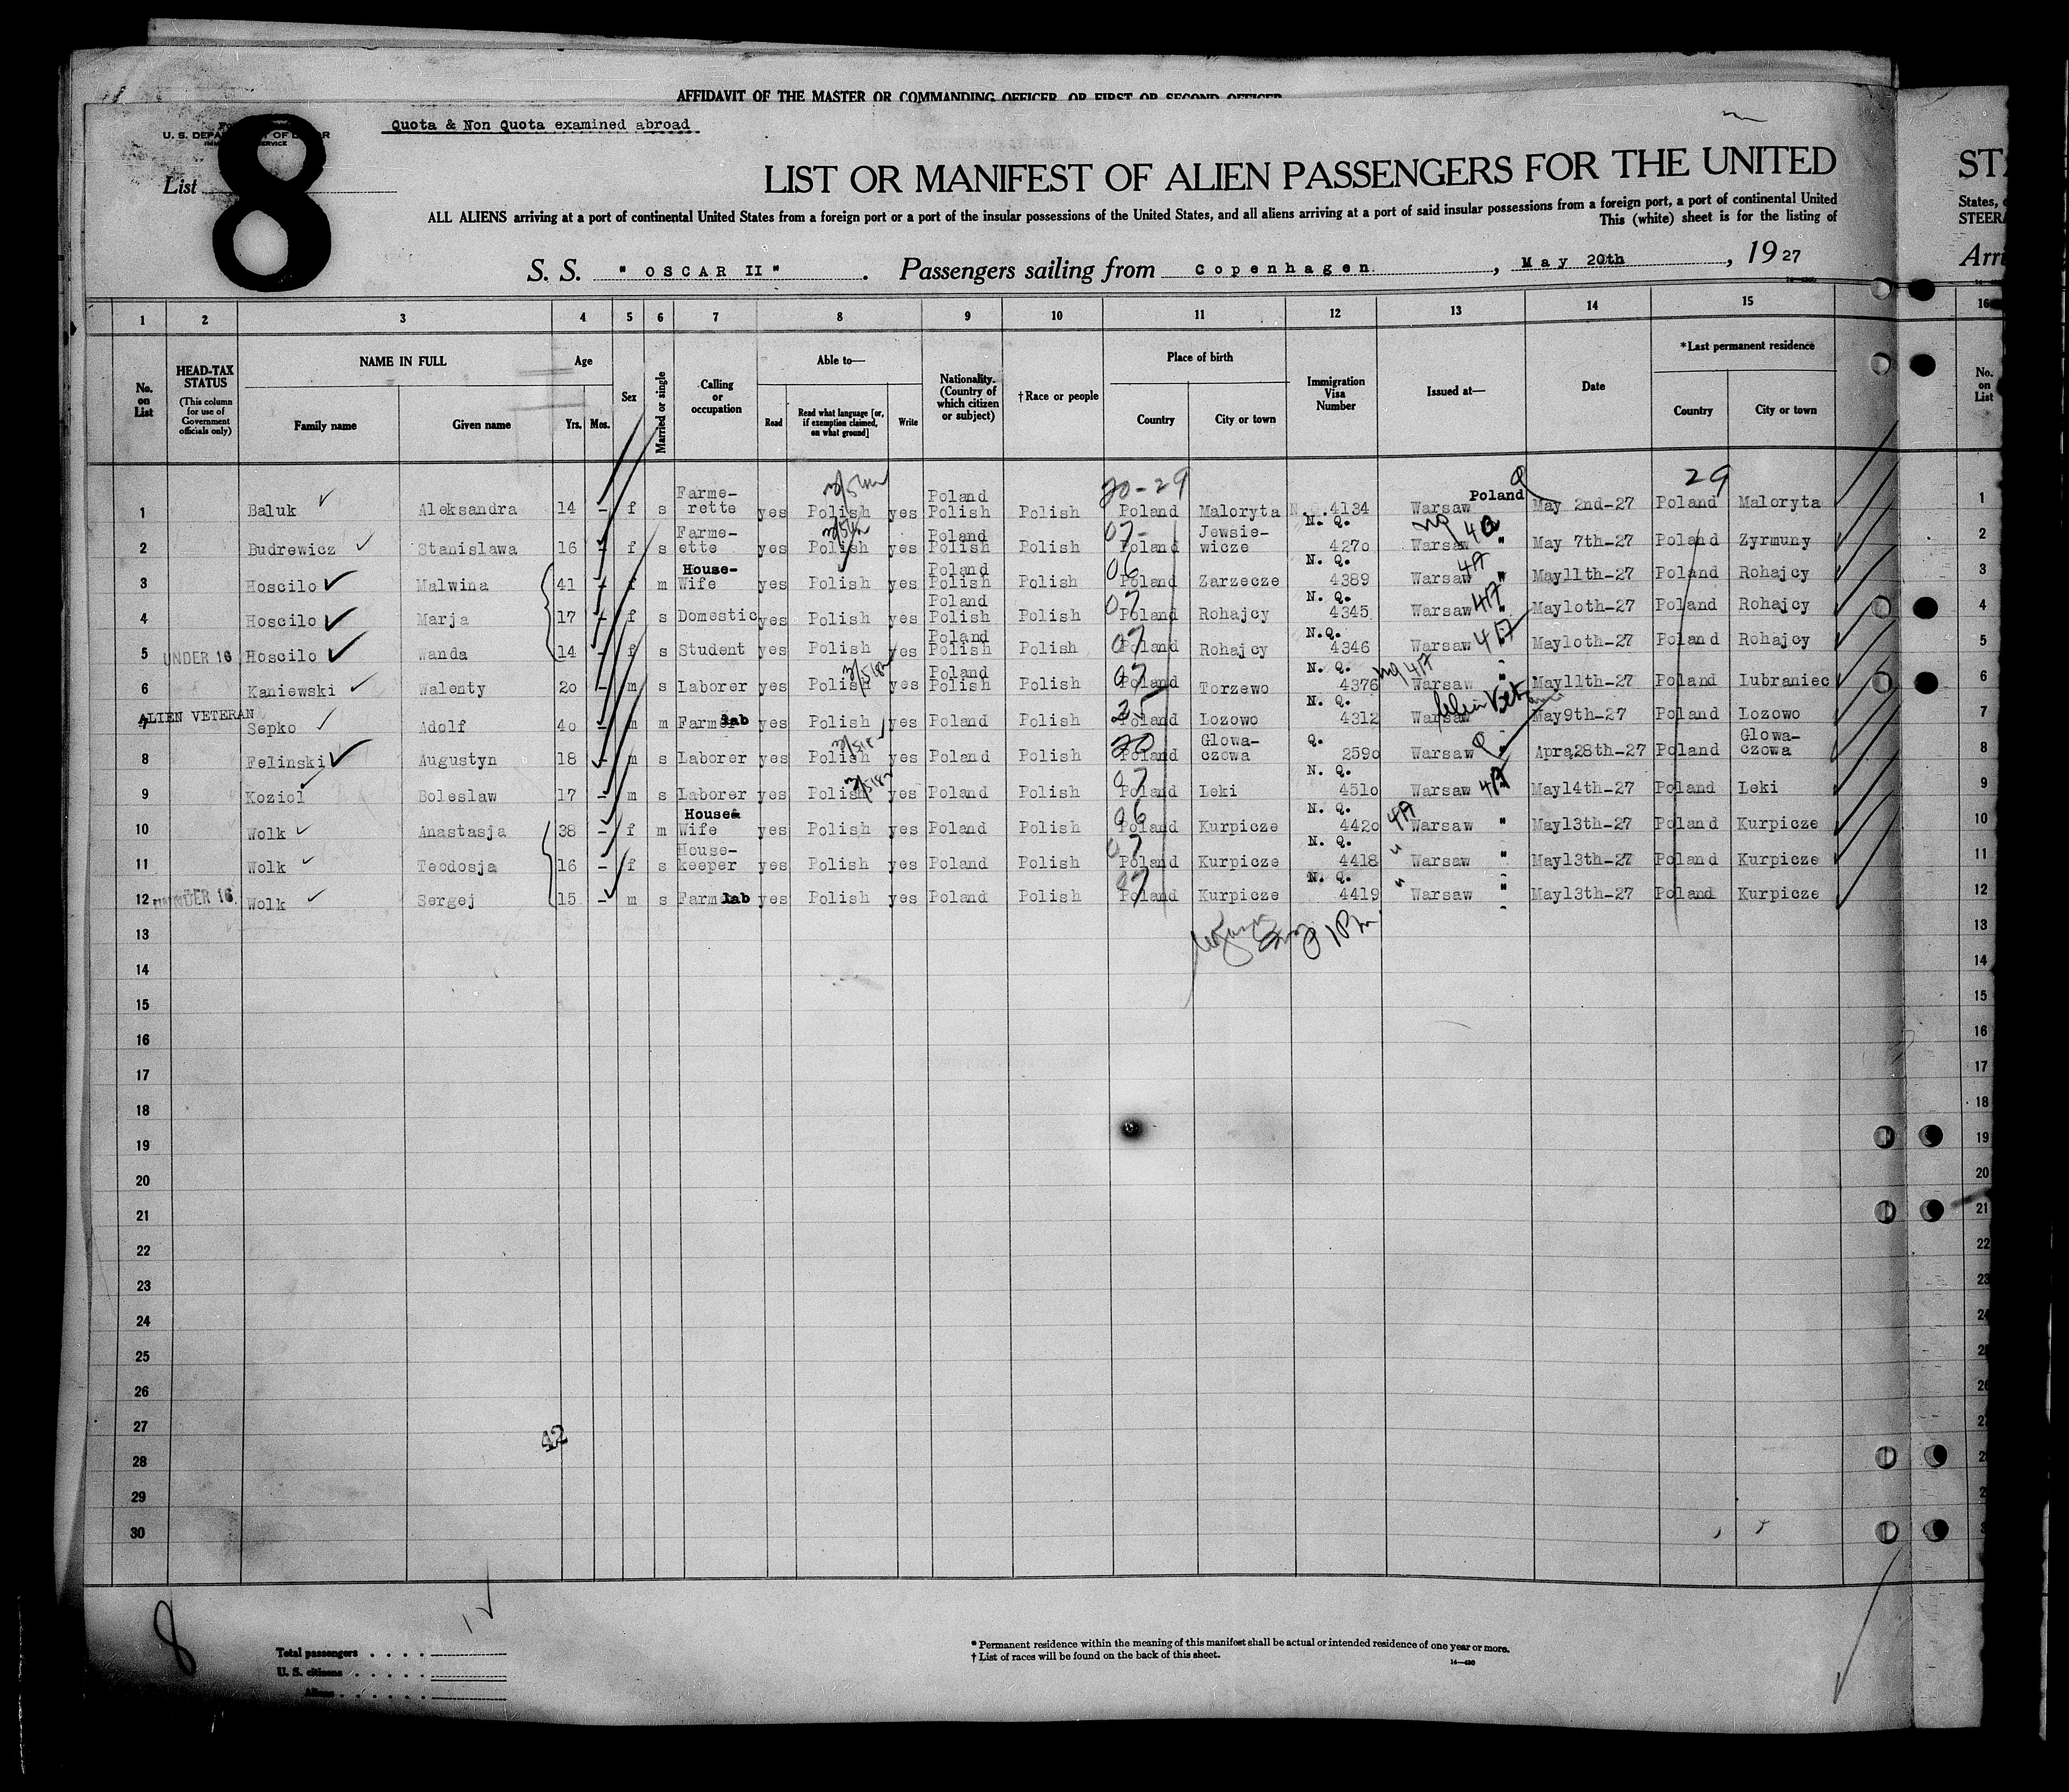 AFFIDAVIT OF THE MASTER OR COMMANDING OFFICER, OR FIRST OR SECOND OFFICER
Quota & Non Quota examined abroad
U. S. DEPARTMENT OF LABOR
List 8
LIST OR MANIFEST OF ALIEN PASSENGERS FOR THE UNITED
ALL ALIENS arriving at a port of continental United States from a foreign port or a port of the insular possessions of the United States, and all aliens arriving at a port of said insular possessions from a foreign port, a port of continental United
This (white) sheet is for the listing of
S. S. " OSCAR II " . Passengers sailing from Copenhagen. , May 20th , 19 27
ST
States,
STEERA
Arri
1 2 3 4 5 6 7 8 9 10 11 12 13 14 15 16
No. on List
HEAD-TAX STATUS
(This column for use of Government officials only)
NAME IN FULL
Family name Given name
Age
Yrs. Mos.
Sex
Married or single
Calling or occupation
Able to—
Read Read what language [or, if exemption claimed, on what ground] Write
Nationality. (Country of which citizen or subject)
†Race or people
Place of birth
Country City or town
Immigration Visa Number
Issued at—
Date
*Last permanent residence
Country City or town
No. on List
20-29 29
1 Baluk Aleksandra 14 - f s Farme-rette yes Polish yes Poland Polish Polish Poland Maloryta N. 4134 Warsaw Poland May 2nd-27 Poland Maloryta 1
2 Budrewicz Stanislawa 16 - f s Farme-ette yes Polish yes Poland Polish Polish 07- Poland Jewsie-wicze N. Q. 4270 Warsaw " May 7th-27 Poland Zyrmuny 2
3 Hoscilo Malwina 41 - f m House-Wife yes Polish yes Poland Polish Polish 06 Poland Zarzecze N. Q. 4389 Warsaw " May11th-27 Poland Rohajcy 3
4 Hoscilo Marja 17 - f s Domestic yes Polish yes Poland Polish Polish 07 Poland Rohajcy N. Q. 4345 Warsaw " May10th-27 Poland Rohajcy 4
5 UNDER 16 Hoscilo Wanda 14 - f s Student yes Polish yes Poland Polish Polish 07 Poland Rohajcy N.Q. 4346 Warsaw " May10th-27 Poland Rohajcy 5
6 Kaniewski Walenty 20 - m s Laborer yes Polish yes Poland Polish Polish 07 Poland Torzewo N. Q. 4376 Warsaw " May11th-27 Poland Lubraniec 6
7 ALIEN VETERAN Sepko Adolf 40 - m m Farm lab yes Polish yes Poland Polish 25 Poland Lozowo N. Q. 4312 Warsaw Alien Vet May9th-27 Poland Lozowo 7
8 Felinski Augustyn 18 - m s Laborer yes Polish yes Poland Polish 20 Poland Glowa-czowa Q. 2590 Warsaw " Apr.28th-27 Poland Glowa-czowa 8
9 Koziol Boleslaw 17 - m s Laborer yes Polish yes Poland Polish 07 Poland Leki N. Q. 4510 Warsaw May14th-27 Poland Leki 9
10 Wolk Anastasja 38 - f m House Wife yes Polish yes Poland Polish 06 Poland Kurpicze N. Q. 4420 Warsaw " May13th-27 Poland Kurpicze 10
11 Wolk Teodosja 16 - f s House-keeper yes Polish yes Poland Polish 07 Poland Kurpicze N. Q. 4418 " Warsaw " May13th-27 Poland Kurpicze 11
12 UNDER 16 Wolk Sergej 15 - m s Farm lab yes Polish yes Poland Polish 07 Poland Kurpicze N. Q. 4419 " Warsaw " May13th-27 Poland Kurpicze 12
13 13
14 14
15 15
16 16
17 17
18 18
19 19
20 20
21 21
22 22
23 23
24 24
25
26 26
27
28
29
30
42
8
Total passengers
U. S. citizens
Aliens
* Permanent residence within the meaning of this manifest shall be actual or intended residence of one year or more.
† List of races will be found on the back of this sheet.